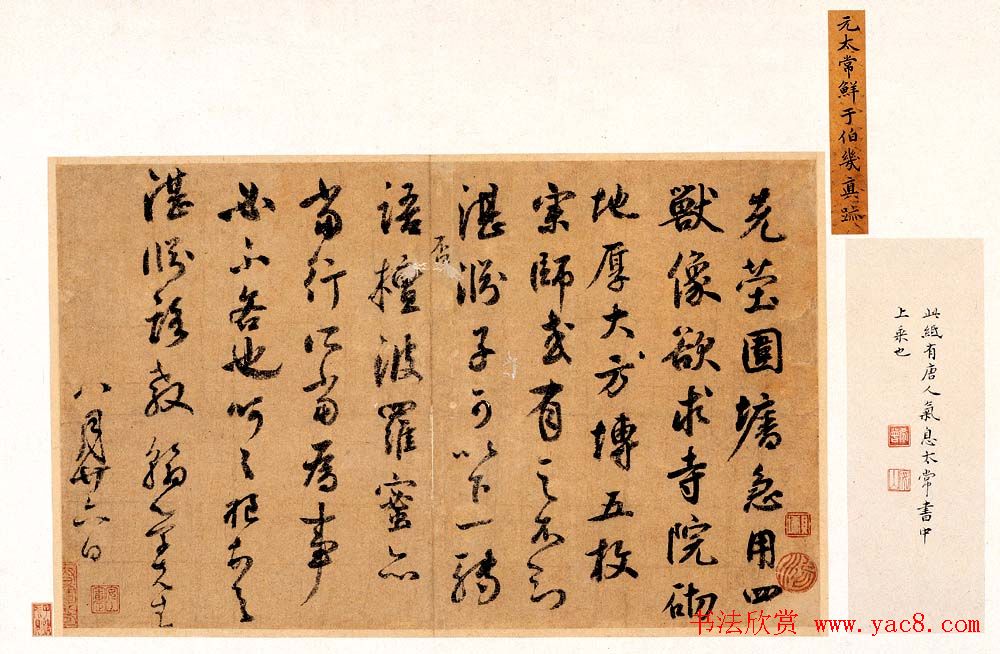 元太常鮮于伯幾真蹟
此紙有唐人氣息太常書中
上乘也
先塋圍墻急用四
獸像欲求寺院砌
地厚大方塼五枚
宗師或有之不則
湛淵子可以下一轉
否
語檀波羅蜜亦
當行所當為事
必不吝也呵呵
湛淵路教翰學先生
八月廿六日
书法欣赏 www.yac8.com